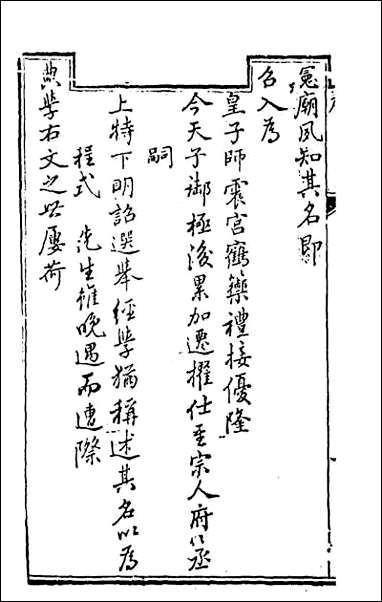 憲廟夙知其名即
召入為
皇子師震宮鶴籥禮接優隆
今天子御極後累加遷擢仕至宗人府丞
嗣
上特下明詔選舉經學猶稱述其名以為
程式 先生雖晚遇而遭際
典學右文之世屢荷